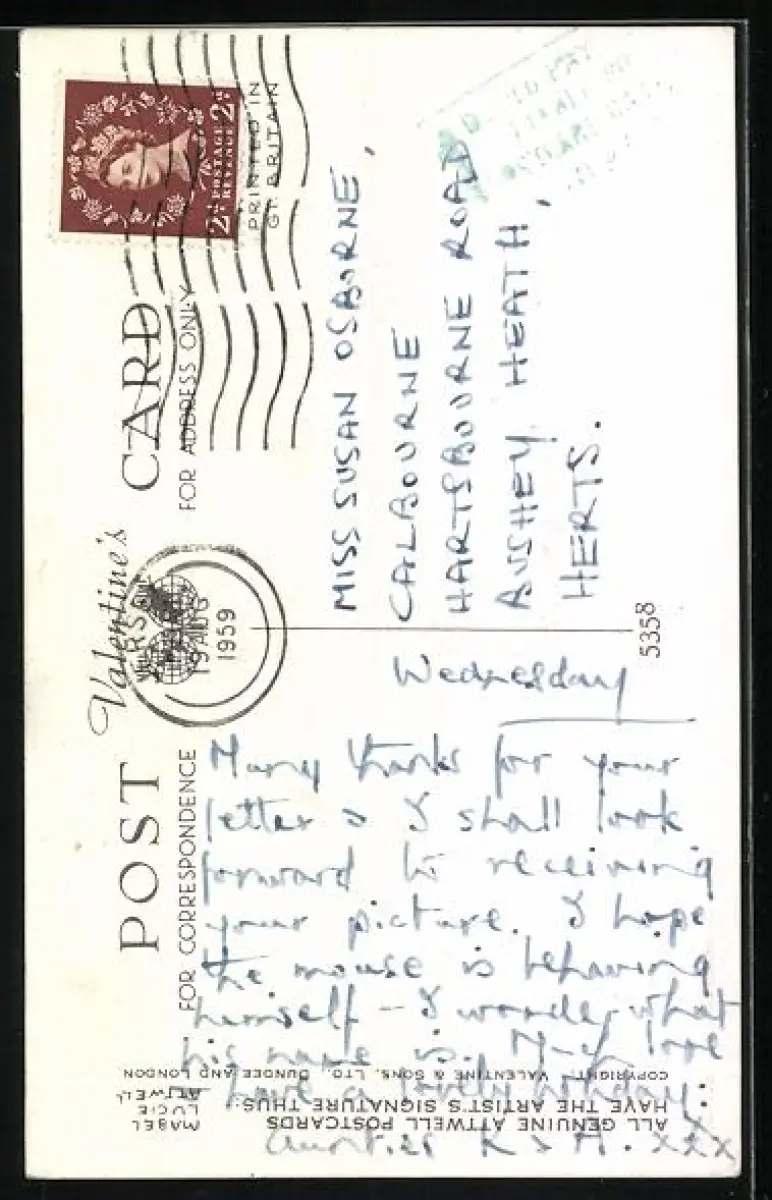 POST CARD
Valentine's
FOR CORRESPONDENCE
FOR ADDRESS ONLY
PRINTED IN
GT BRITAIN
POSTAGE
REVENUE
2D
2D
19 AUG
1959
MISS SUSAN OSBORNE,
CALBOURNE
HARTSBOURNE ROAD
BUSHEY HEATH,
HERTS.
5358
Wednesday
Many thanks for your
letter & I shall look
forward to receiving
your picture. I hope
the mouse is behaving
himself – I wonder what
his name is. Much love
have a lovely holiday:
K & A. xxx
ALL GENUINE ATTWELL POSTCARDS
HAVE THE ARTIST'S SIGNATURE THUS:
MABEL
LUCIE
ATTWELL
COPYRIGHT. VALENTINE & SONS, LTD. DUNDEE AND LONDON